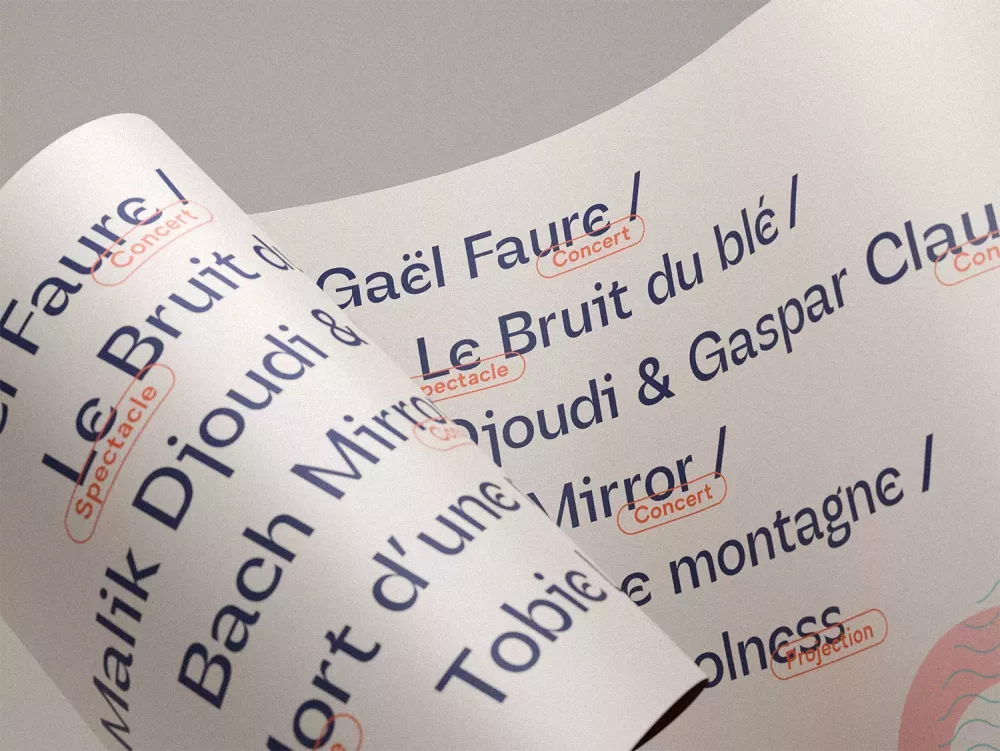 Faure /
Concert
Le Bruit
Spectacle
Malik Djoudi &
Bach Mirro
Mort d'une
Tobie
Gaël Faure /
Concert
Le Bruit du blé /
pectacle
Djoudi & Gaspar Clau
Con
Mirror /
Concert
e montagne /
olness
Projection